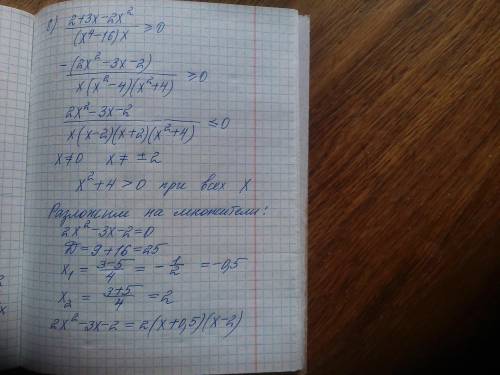 в) (2+3x-2x²)/((x⁴-16)x) ≥ 0
-(2x²-3x-2)/(x(x²-4)(x²+4)) ≥ 0
(2x²-3x-2)/(x(x-2)(x+2)(x²+4)) ≤ 0
x≠0 x≠ ±2
x²+4>0 при всех x
Разложим на множители:
2x²-3x-2=0
D=9+16=25
x₁ = (3-5)/4 = -1/2 = -0,5
x₂ = (3+5)/4 = 2
2x²-3x-2 = 2(x+0,5)(x-2)